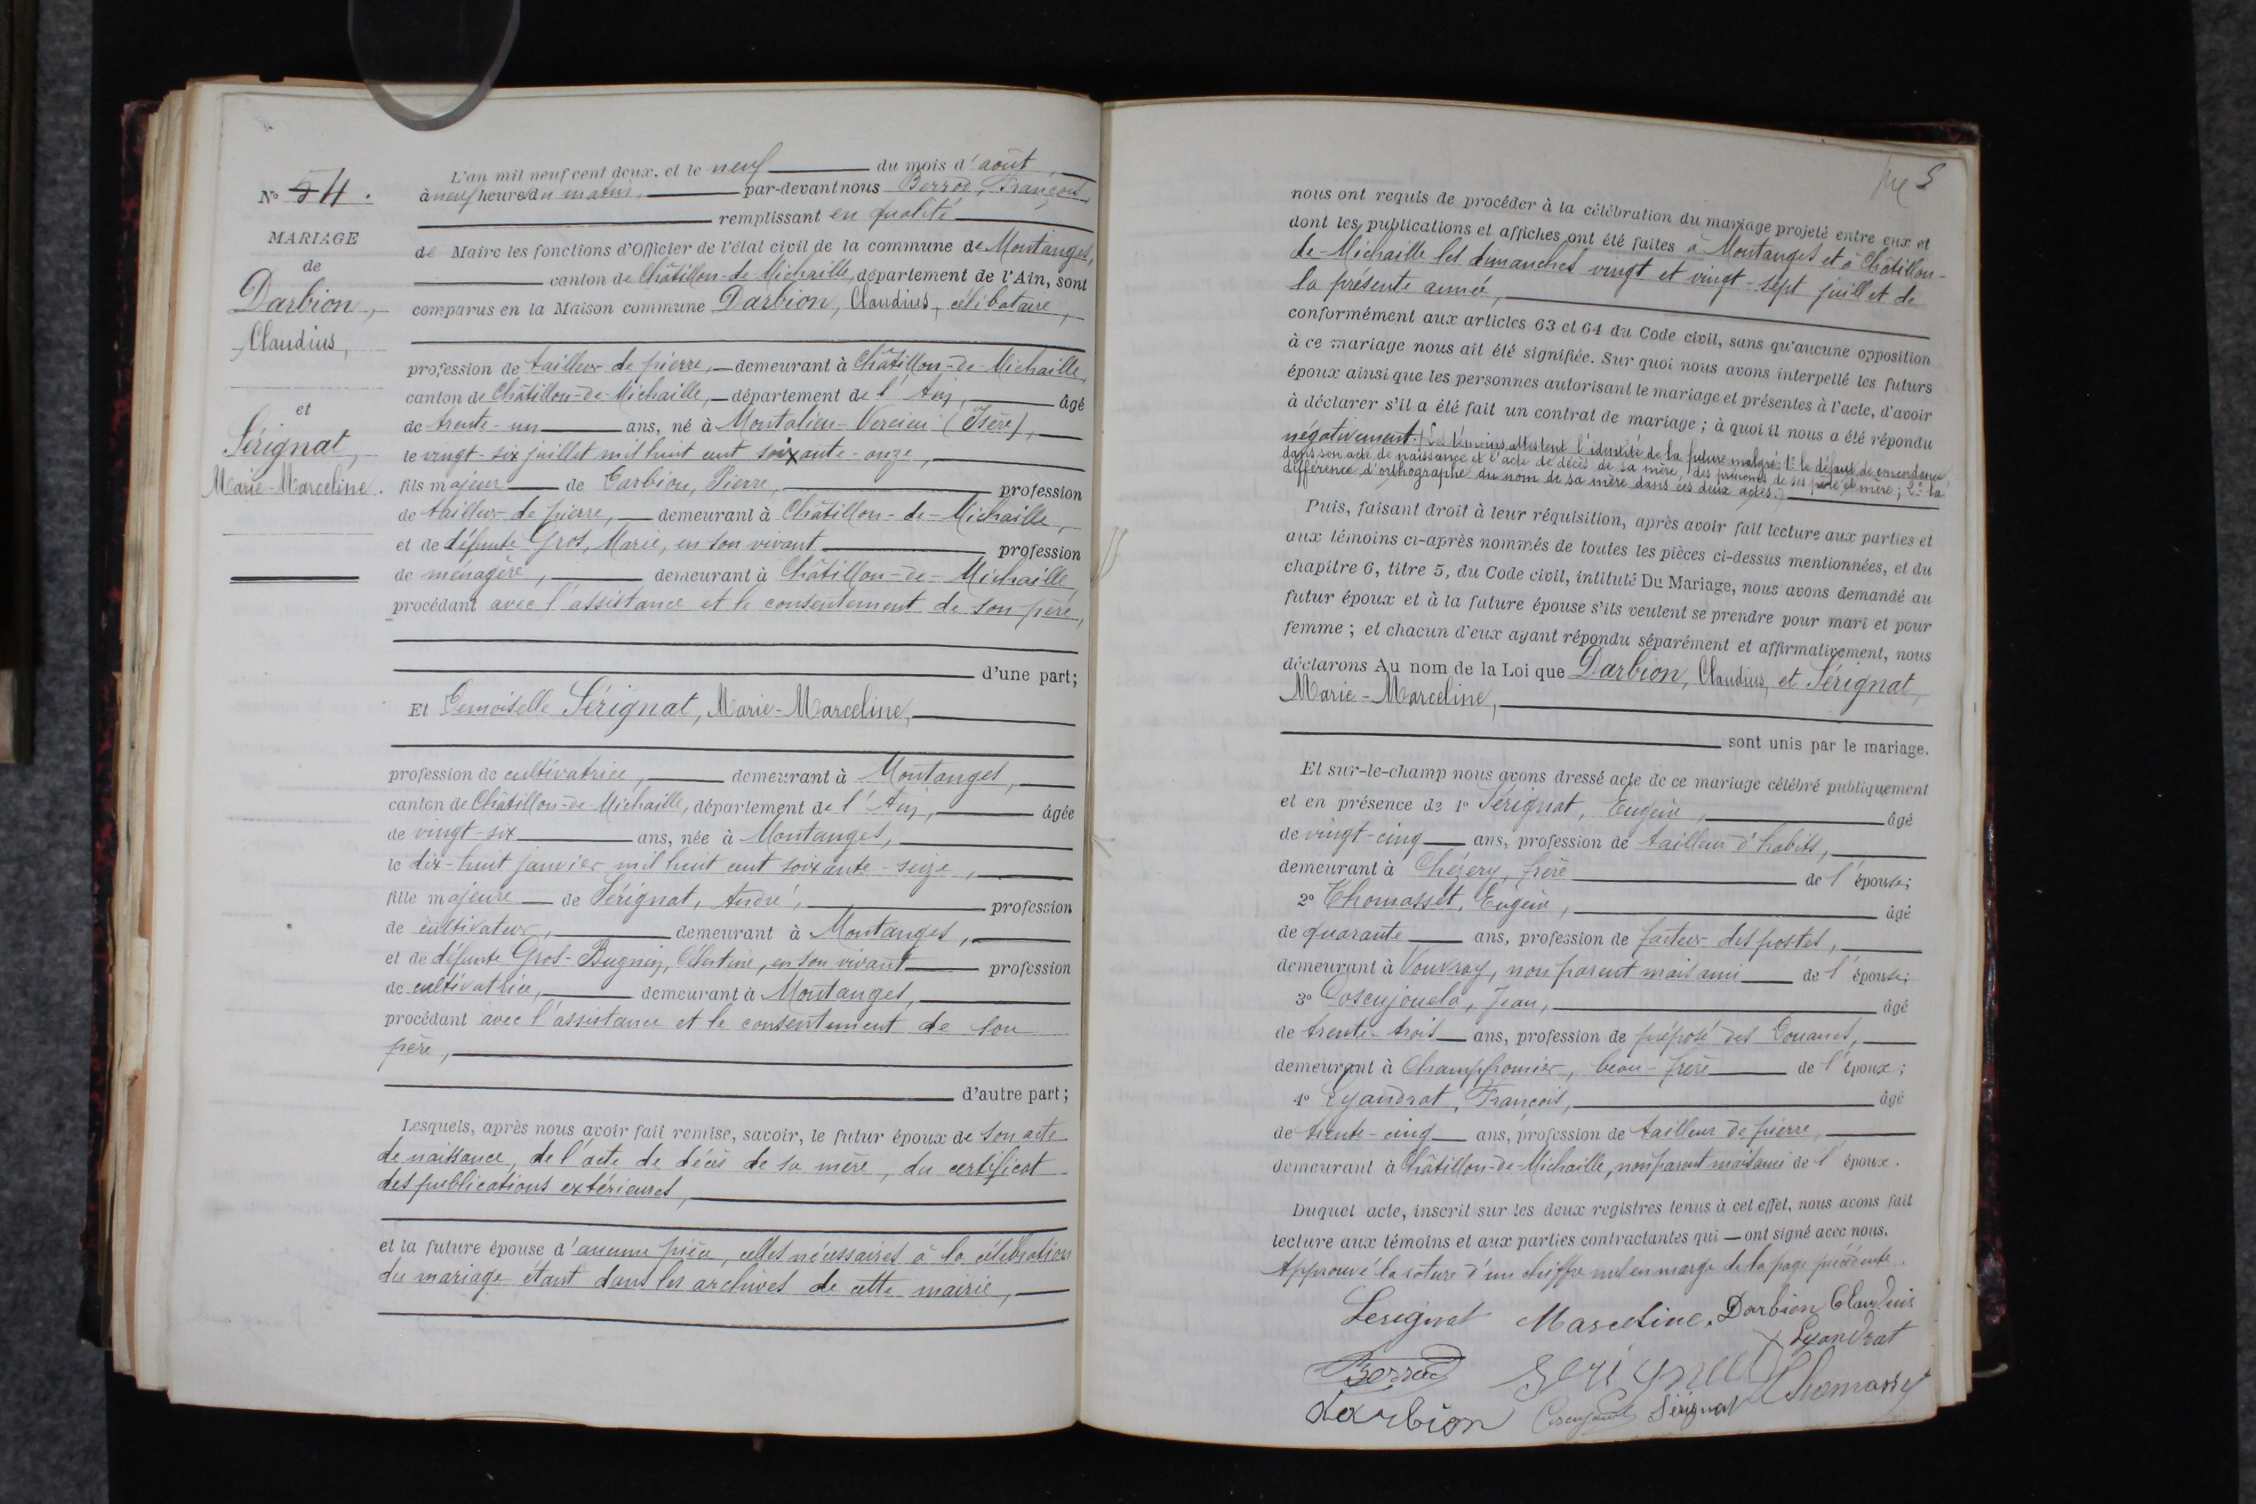 L'an mil neuf cent deux, et le neuf du mois d'août
à neuf heures du matin, par-devant nous Berrod, François
remplissant en qualité
de Maire les fonctions d'Officier de l'état civil de la commune de Montanges,
canton de Châtillon-de-Michaille, département de l'Ain, sont
comparus en la Maison commune Darbion, Claudius, célibataire,
profession de tailleur de pierre, demeurant à Châtillon-de-Michaille,
canton de Châtillon-de-Michaille, département de l'Ain, âgé
de trente-un ans, né à Montalieu-Vercieu (Isère),
le vingt-six juillet mil huit cent soixante-onze,
fils majeur de Darbion, Pierre, profession
de tailleur de pierre, demeurant à Châtillon-de-Michaille,
et de défunte Gros, Marie, en son vivant profession
de ménagère, demeurant à Châtillon-de-Michaille,
procédant avec l'assistance et le consentement de son père,
d'une part;
Et Demoiselle Sérignat, Marie-Marceline,
profession de cultivatrice, demeurant à Montanges,
canton de Châtillon-de-Michaille, département de l'Ain, âgée
de vingt-six ans, née à Montanges,
le dix-huit janvier mil huit cent soixante-seize,
fille majeure de Sérignat, André, profession
de cultivateur, demeurant à Montanges,
et de défunte Gros-Buguin, Célestine, en son vivant profession
de cultivatrice, demeurant à Montanges,
procédant avec l'assistance et le consentement de son
père,
d'autre part;
Lesquels, après nous avoir fait remise, savoir, le futur époux de son acte
de naissance, de l'acte de décès de sa mère, du certificat
des publications extérieures,
et la future épouse d'aucune pièce, celles nécessaires à la célébration
du mariage étant dans les archives de cette mairie,
No 54.
MARIAGE
de
Darbion,
Claudius,
et
Sérignat,
Marie-Marceline.
nous ont requis de procéder à la célébration du mariage projeté entre eux et
dont les publications et affiches ont été faites à Montanges et à Châtillon-
de-Michaille les dimanches vingt et vingt-sept juillet de
la présente année,
conformément aux articles 63 et 64 du Code civil, sans qu'aucune opposition
à ce mariage nous ait été signifiée. Sur quoi nous avons interpellé les futurs
époux ainsi que les personnes autorisant le mariage et présentes à l'acte, d'avoir
à déclarer s'il a été fait un contrat de mariage; à quoi il nous a été répondu
négativement. Les témoins attestent l'identité de la future malgré: 1º le défaut de concordance,
dans son acte de naissance et l'acte de décès de sa mère, des prénoms de ses père et mère; 2º la
différence d'orthographe du nom de sa mère dans ces deux actes.
Puis, faisant droit à leur réquisition, après avoir fait lecture aux parties et
aux témoins ci-après nommés de toutes les pièces ci-dessus mentionnées, et du
chapitre 6, titre 5, du Code civil, intitulé Du Mariage, nous avons demandé au
futur époux et à la future épouse s'ils veulent se prendre pour mari et pour
femme; et chacun d'eux ayant répondu séparément et affirmativement, nous
déclarons Au nom de la Loi que Darbion, Claudius, et Sérignat,
Marie-Marceline,
sont unis par le mariage.
Et sur-le-champ nous avons dressé acte de ce mariage célébré publiquement
et en présence de 1º Sérignat, Eugène, âgé
de vingt-cinq ans, profession de tailleur d'habits,
demeurant à Chézery, frère de l'épouse;
2º Thomasset, Eugène, âgé
de quarante ans, profession de facteur des postes,
demeurant à Vouvray, non parent mais ami de l'épouse;
3º Jean, âgé
de trente-trois ans, profession de préposé des Douanes,
demeurant à Champfromier, beau-frère de l'époux;
4º Lyandrat, François, âgé
de trente-cinq ans, profession de tailleur de pierre,
demeurant à Châtillon-de-Michaille, non parent mais ami de l'époux.
Duquel acte, inscrit sur les deux registres tenus à cet effet, nous avons fait
lecture aux témoins et aux parties contractantes qui ont signé avec nous.
Approuvé la rature d'un chiffre nul en marge de la page précédente.
Serignat Marceline. Darbion Claudius
Lyandrat
Berrod Serignat Thomasset
Darbion Sérignat